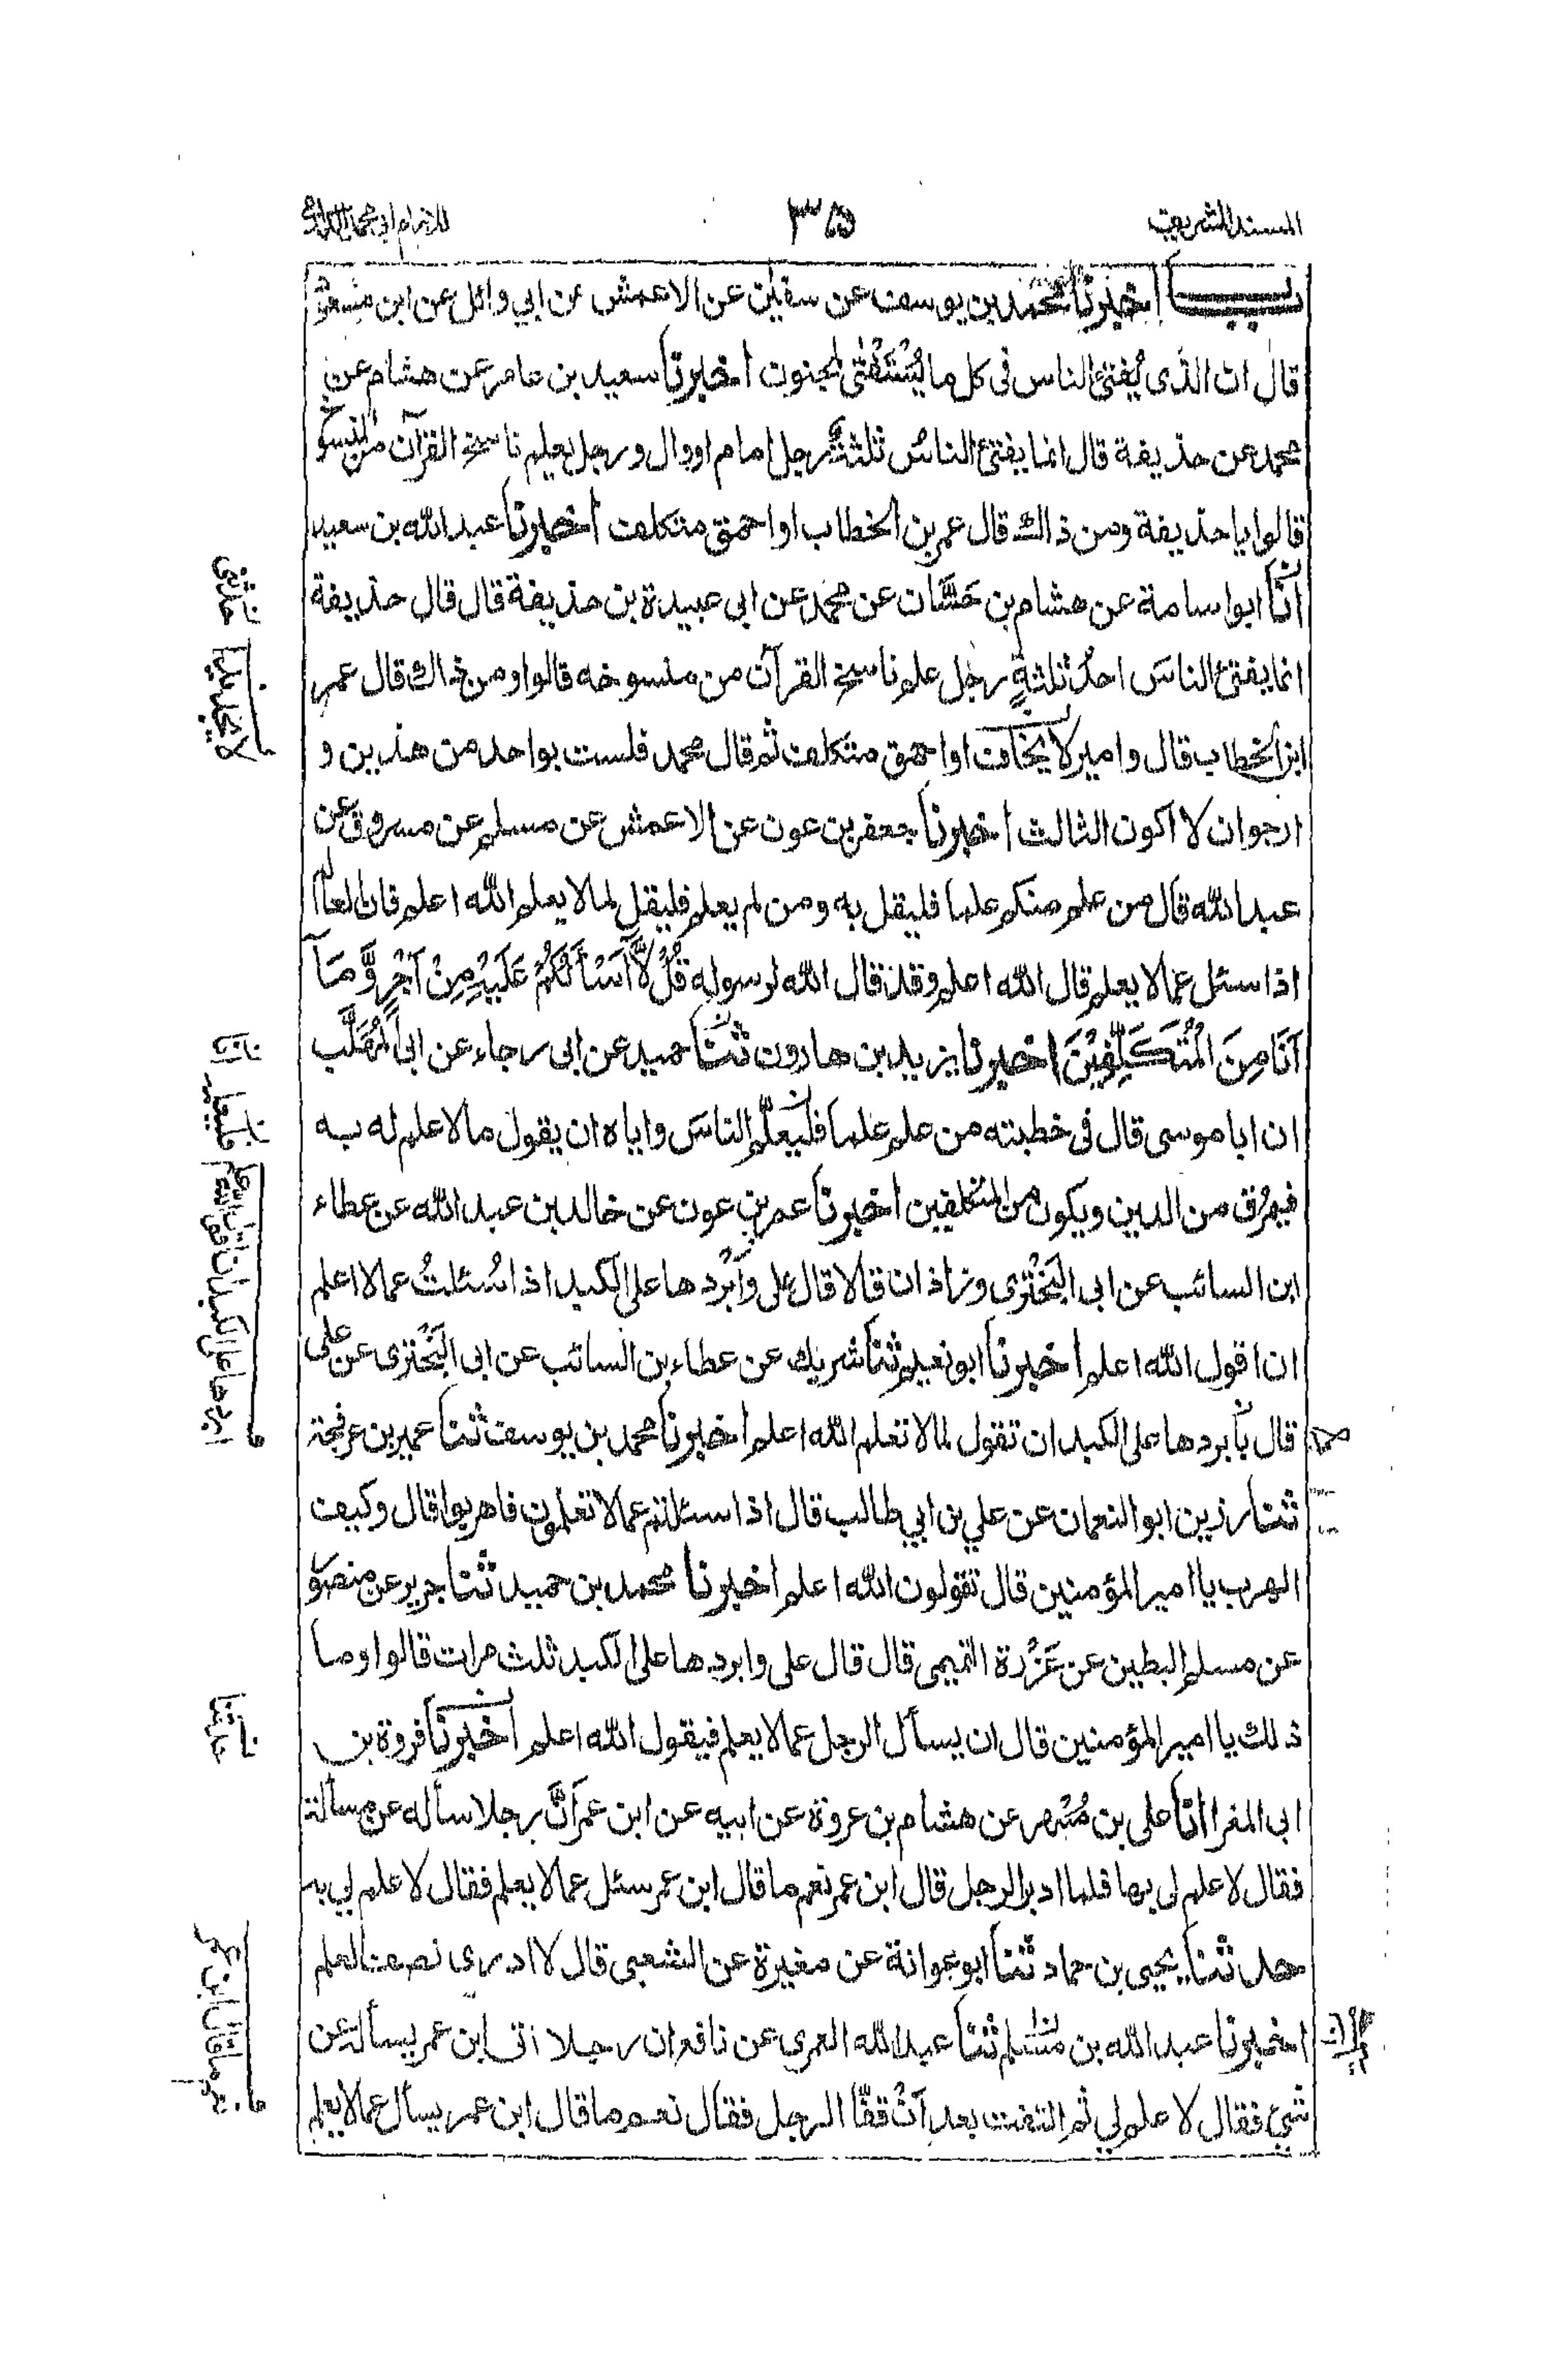 المسند الشريف
٣٥
للامام ابي محمد الدارمي
باب اخبرنا محمد بن يوسف عن سفين عن الاعمش عن ابي وائل عن ابن مسعود
قال ان الذى يُفتى الناس فى كل ما يُسْتَفْتٰى لمجنون اخبرنا سعيد بن عامر عن هشام عن
محمد عن حذيفة قال انما يفتى الناسَ ثلثة رجل امام او وال و رجل يعلم ناسخ القرآن من المنسوخ
قالوا يا حذيفة ومن ذاك قال عمر بن الخطاب او احمق متكلف اخبرنا عبد الله بن سعيد
انَا ابو اسامة عن هشام بن حَسَّان عن محمد عن ابى عبيدة بن حذيفة قال قال حذيفة
انما يفتى الناسَ احدُ ثلثةٍ رجل علم ناسخ القرآن من منسوخه قالوا ومن ذاك قال عمر
ابن الخطاب قال وامير لا يخاف او احمق متكلف ثم قال محمد فلست بواحد من هذين و
ارجو ان لا اكون الثالث اخبرنا جعفر بن عون عن الاعمش عن مسلم عن مسروق عن
عبد الله قال من علم منكم علما فليقل به ومن لم يعلم فليقل لما لا يعلم الله اعلم فان العالم
اذا سئل عما لا يعلم قال الله اعلم وقد قال الله لرسوله قُلْ لَّآ اَسْأَلُكُمْ عَلَيْهِ مِنْ اَجْرٍ وَّمَآ
اَنَا مِنَ الْمُتَكَلِّفِيْنَ اخبرنا يزيد بن هارون ثنَا حميد عن ابى رجاء عن ابى المُهَلَّب
ان ابا موسى قال فى خطبته من علم علما فليُعَلِّم الناسَ واياه ان يقول ما لا علم له به
فيمرُق من الدين ويكون من المتكلفين اخبرنا عمر بن عون عن خالد بن عبد الله عن عطاء
ابن السائب عن ابى البَخْتَرى وزاذان قالا قال على وابردها على الكبد اذا سُئلتُ عما لا اعلم
ان اقول الله اعلم اخبرنا ابو نعيم ثنا شريك عن عطاء بن السائب عن ابى البَخْتَرى عن على
قال يا بردها على الكبد ان تقول لما لا تعلم الله اعلم اخبرنا محمد بن يوسف ثنا عمير بن عرفجة
ثنا رزين ابو النعمان عن علي بن ابي طالب قال اذا سئلتم عما لا تعلمون فاهربوا قال وكيف
الهرب يا امير المؤمنين قال تقولون الله اعلم اخبرنا محمد بن حميد ثنا جرير عن منصور
عن مسلم البطين عن عَزْرة التميمى قال قال على وابردها على الكبد ثلث مرات قالوا وما
ذلك يا امير المؤمنين قال ان يسأل الرجل عما لا يعلم فيقول الله اعلم اخبرنا فروة بن
ابى المغرا انَا على بن مُسْهِر عن هشام بن عروة عن ابيه عن ابن عمر اَنَّ رجلا سأله عن مسألة
فقال لا علم لى بها فلما ادبر الرجل قال ابن عمر نعم ما قال ابن عمر سئل عما لا يعلم فقال لا علم لي به
حدثنا يحيى بن حماد ثنا ابو عوانة عن مغيرة عن الشعبى قال لا ادرى نصف العلم
اخبرنا عبد الله بن مسلم ثنا عبد الله العمرى عن نافع ان رجلا اتى ابن عمر يسأله عن
شىئ فقال لا علم لي ثم التفت بعد اَنْ قفّا الرجل فقال نعم ما قال ابن عمر يسأل عما لا يعلم
حدثنى
لا يجد بدا
انا
فليعلمه
ابردها على الكبد
حدثنا
نعم ما قال ابن عمر